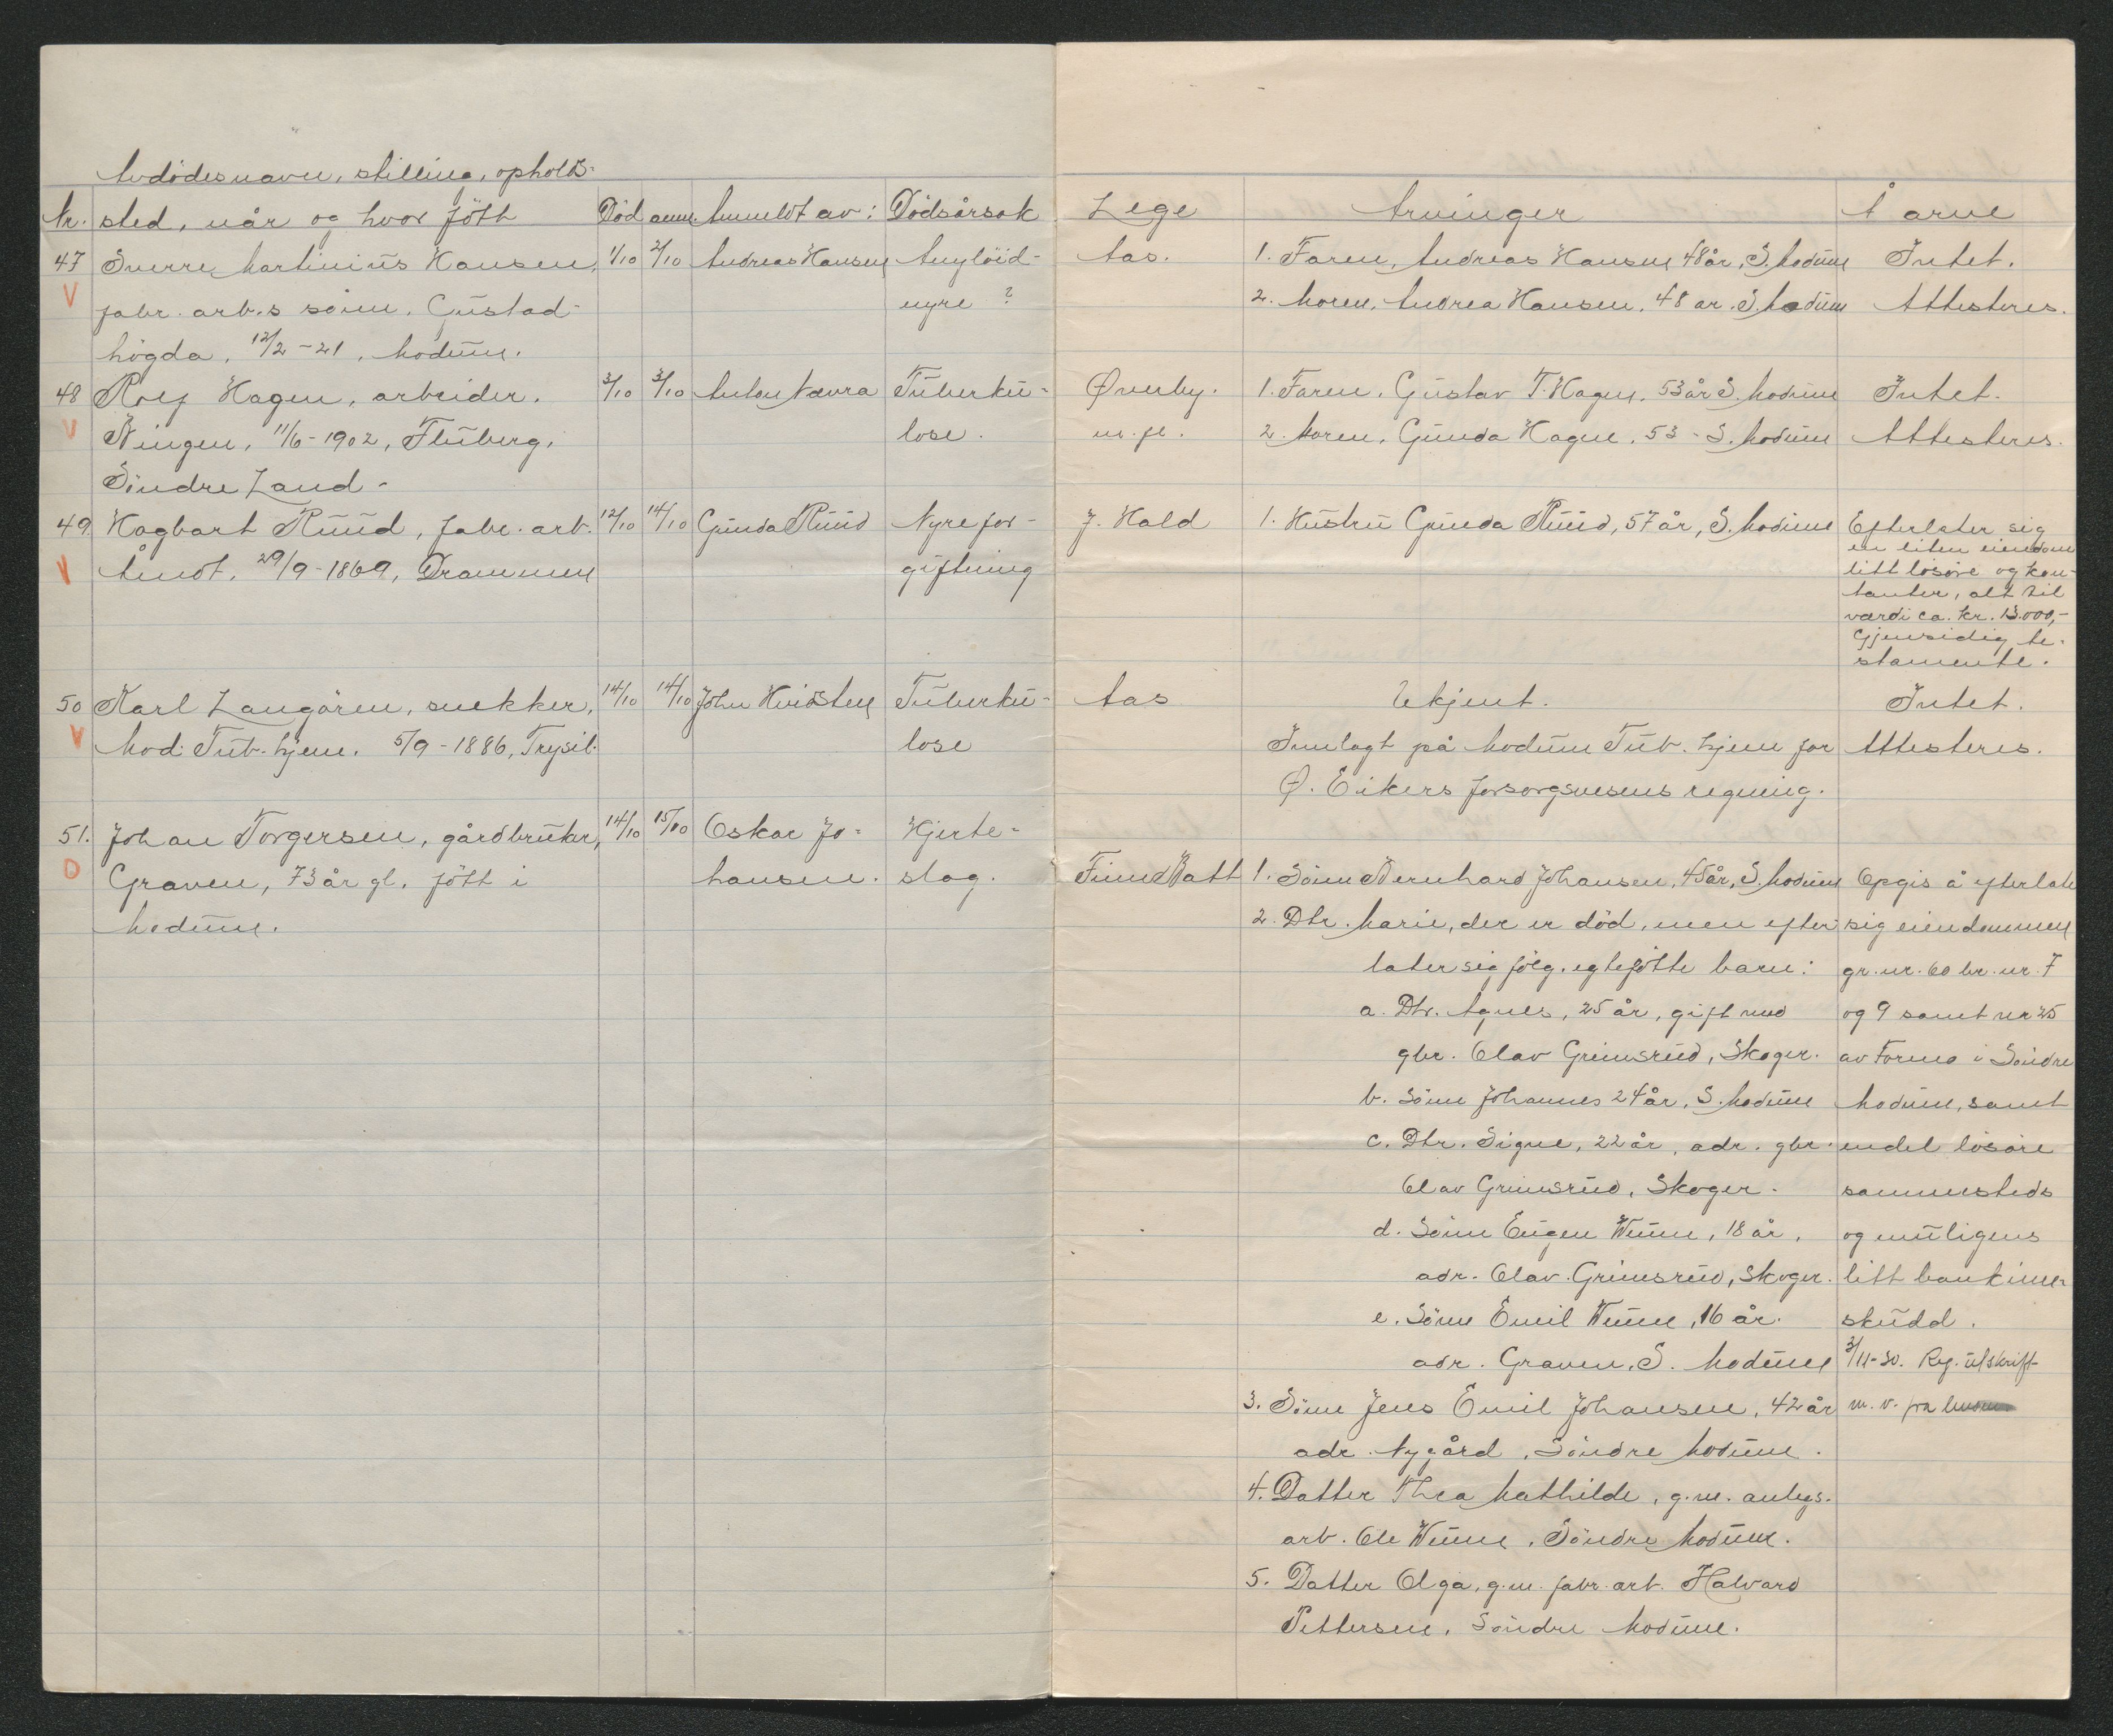 Avdödes navn, stilling, opholds-
Nr. sted, når og hvor fött Död anm. Anmeldt av: Dödsårsak Lege Arvinger Å arve
47 Sverre Martinius Hansen, 1/10 2/10 Andreas Hansen Amyloid- Aas. 1. Faren, Andreas Hansen 48 år, S. Modum Intet.
V fabr. arb.s sönn. Gustad- nyre ? 2. Moren, Andrea Hansen, 48 år. S. Modum Attesteres.
högda, 12/2-21, Modum.
48 Rolf Hagen, arbeider. 3/10 3/10 Anton Nævra Tuberku- Øverby. 1. Faren, Gustav T. Hagen, 53 år S. Modum Intet.
V Vingen, 11/6-1902, Fluberg, lose. m. fl. 2. Moren, Gunda Hagen, 53 - S. Modum Attesteres.
Söndre Land -
49. Hagbart Ruud, fabr. arb. 12/10 14/10 Gunda Ruud Nyrefor- J. Hald 1. Hustru Gunda Ruud, 57 år, S. Modum Efterlater sig
en liten eiendom
V Åmot, 29/9-1869, Drammen giftning litt lösöre og kon-
tanter, alt til
værdi ca. kr. 13.000,-
Gjensidig te-
stamente.
50 Karl Langören, snekker, 14/10 14/10 John Hvidsten Tuberku- Aas Ukjent. Intet.
V Mod. Tub. hjem. 5/9-1886, Trysil. lose Innlagt på Modum Tub. hjem for Attesteres.
Ø. Eikers forsorgsvesens regning.
51. Johan Torgersen, gårdbruker, 14/10 15/10 Oskar Jo- Hjerte-
O Graven, 73 år gl. fött i hansen. slag. Finn Batt 1. Sönn Bernhard Johansen, 45 år, S. Modum Opgis å efterlate
Modum. 2. Dtr. Marie, der er död, men efter- sig eiendommen
later sig fölg. egtefötte barn: gr. nr. 60 br. nr. 7
a. Dtr. Agnes, 25 år, gift med og 9 samt nr 25
gbr. Olav Grimsrud, Skoger. av Formo i Söndre
b. Sönn Johannes 24 år, S. Modum Modum, samt
c. Dtr. Signe, 22 år, adr. gbr. endel lösöre
Olav Grimsrud, Skoger. sammesteds
d. Sönn Eugen Wenn, 18 år, og muligens
adr. Olav Grimsrud, Skoger. litt bankinn-
e. Sönn Emil Wenn, 16 år. skudd.
adr. Graven, S. Modum 3/11-30. Reg. utskrift
3. Sönn Jens Emil Johansen, 42 år m. v. fra
adr. Nygård, Söndre Modum.
4. Datter Thea Mathilde, g. m. anlegs.
arb. Ole Wenn, Söndre Modum.
5. Datter Olga, g. m. fabr. arb. Halvard
Pettersen, Söndre Modum.